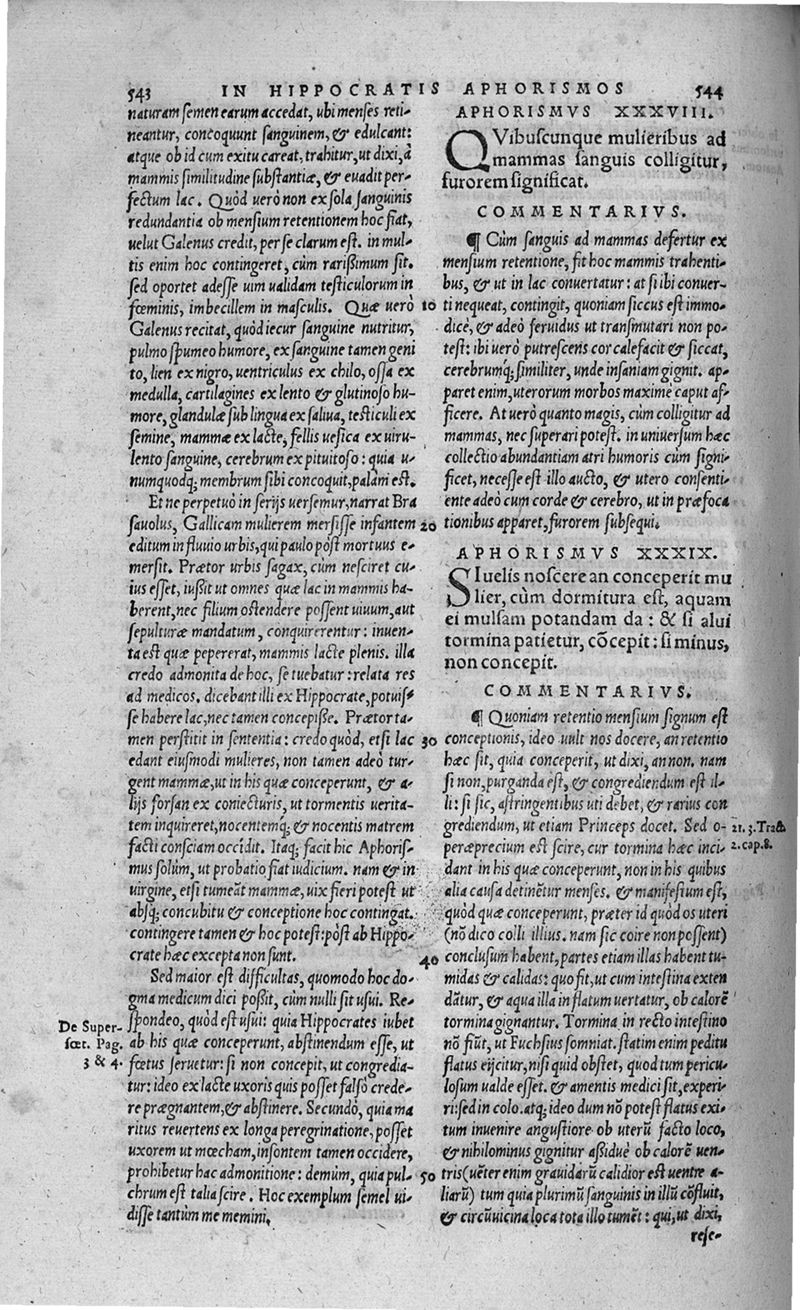 543 IN HIPPOCRATIS APHORISMOS 544
naturam semen earum accedat, ubi menses reti-
neantur, concoquunt sanguinem, & edulcant:
atque ob id cum exitu careat, trahitur, ut dixi, à
mammis similitudine substantiæ, & euadit per-
fectum lac. Quòd uerò non ex sola sanguinis
redundantia ob mensium retentionem hoc fiat,
uelut Galenus credit, per se clarum est. in mul-
tis enim hoc contingeret, cùm rarißimum sit.
sed oportet adesse uim ualidam testiculorum in
fœminis, imbecillem in masculis. Quæ uerò
Galenus recitat, quòd iecur sanguine nutritur,
pulmo spumeo humore, ex sanguine tamen geni
to, lien ex nigro, uentriculus ex chilo, ossa ex
medulla, cartilagines ex lento & glutinoso hu-
more, glandulæ sub lingua ex saliua, testiculi ex
semine, mammæ ex lacte, fellis uesica ex uiru-
lento sanguine, cerebrum ex pituitoso: quia u-
numquodq; membrum sibi concoquit, palàm est.
Et ne perpetuò in serijs uersemur, narrat Bra
sauolus, Gallicam mulierem mersisse infantem
editum in fluuio urbis, qui paulo pòst mortuus e-
mersit. Prætor urbis sagax, cùm nesciret cu-
ius esset, iußit ut omnes quæ lac in mammis ha-
berent, nec filium ostendere possent uiuum, aut
sepulturæ mandatum, conquirerentur: inuen-
ta est quæ pepererat, mammis lacte plenis. illa
credo admonita de hoc, se tuebatur: relata res
ad medicos. dicebant illi ex Hippocrate, potuis-
se habere lac, nec tamen concepiße. Prætor ta-
men perstitit in sententia: credo quòd, etsi lac
edant eiusmodi mulieres, non tamen adeò tur-
gent mammæ, ut in his quæ conceperunt, & a-
lijs forsan ex coniecturis, ut tormentis uerita-
tem inquireret, nocentemq; & nocentis matrem
facti consciam occidit. Itaq; facit hic Aphoris-
mus solùm, ut probatio fiat iudicium. nam & in
uirgine, etsi tumeãt mammæ, uix fieri potest ut
absq; concubitu & conceptione hoc contingat.
contingere tamen & hoc potest: pòst ab Hippo-
crate hæc excepta non sunt.
Sed maior est difficultas, quomodo hoc do-
gma medicum dici poßit, cùm nulli sit usui. Re-
spondeo, quòd est usui: quia Hippocrates iubet
ab his quæ conceperunt, abstinendum esse, ut
fœtus seruetur: si non concepit, ut congredia-
tur: ideo ex lacte uxoris quis posset falsò crede-
re prægnantem, & abstinere. Secundò, quia ma
ritus reuertens ex longa peregrinatione, posset
uxorem ut mœcham, insontem tamen occidere,
prohibetur hac admonitione: demùm, quia pul-
chrum est talia scire. Hoc exemplum semel ui-
disse tantùm me memini.
De Super-
fœt. Pag.
3 & 4.
10
20
30
40
50
APHORISMVS XXXVIII.
QVibuscunque mulieribus ad
mammas sanguis colligitur,
furorem significat.
COMMENTARIVS.
¶ Cùm sanguis ad mammas defertur ex
mensium retentione, fit hoc mammis trahenti-
bus, & ut in lac conuertatur: at si ibi conuer-
ti nequeat, contingit, quoniam siccus est immo-
dicè, & adeò feruidus ut transmutari non po-
test: ibi uerò putrescens cor calefacit & siccat,
cerebrumq; similiter, unde insaniam gignit. ap-
paret enim, uterorum morbos maximè caput af-
ficere. At uerò quanto magis, cùm colligitur ad
mammas, nec superari potest. in uniuersum hæc
collectio abundantiam atri humoris cùm signi-
ficet, necesse est illo aucto, & utero consenti-
ente adeò cum corde & cerebro, ut in præfoca
tionibus apparet, furorem subsequi.
APHORISMVS XXXIX.
SI uelis noscere an conceperit mu
lier, cùm dormitura est, aquam
ei mulsam potandam da: & si alui
tormina patietur, cõcepit: si minus,
non concepit.
COMMENTARIVS.
¶ Quoniam retentio mensium signum est
conceptionis, ideo uult nos docere, an retentio
hæc sit, quia conceperit, ut dixi, an non. nam
si non, purganda est, & congrediendum est il-
li: si sic, astringentibus uti debet, & rarius con
grediendum, ut etiam Princeps docet. Sed o-
peræprecium est scire, cur tormina hæc inci-
dant in his quæ conceperunt, non in his quibus
alia causa detinẽtur menses. & manifestum est,
quòd quæ conceperunt, præter id quòd os uteri
(nõ dico colli illius. nam sic coire non possent)
conclusum habent, partes etiam illas habent tu-
midas & calidas: quo fit, ut cum intestina exten
dãtur, & aqua illa in flatum uertatur, ob calorẽ
tormina gignantur. Tormina in recto intestino
nõ fiũt, ut Fuchsius somniat. statim enim peditu
flatus eijcitur, nisi quid obstet, quod tum pericu-
losum ualde esset. & amentis medici sit, experi-
ri: sed in colo. atq; ideo dum nõ potest flatus exi-
tum inuenire angustiore ob uterũ facto loco,
& nihilominus gignitur aßiduè ob calorẽ uen-
tris (uẽter enim grauidarũ calidior est uentre a-
liarũ) tum quia plurimũ sanguinis in illũ cõfluit,
& circũuicina loca tota illo tumẽt: qui, ut dixi,
rese-
21. 3. Tra&
2. cap. 8.